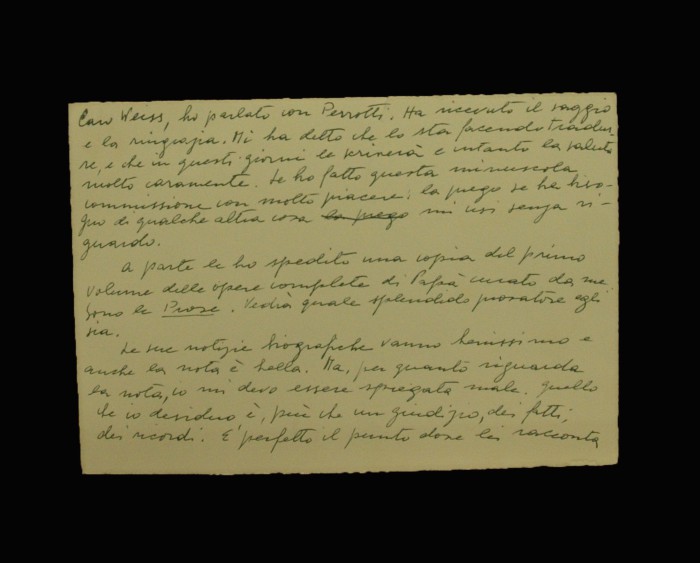 Caro Weiss, ho parlato con Perrotti. Ha ricevuto il saggio
e la ringrazia. Mi ha detto che lo sta facendo tradur
re, e che in questi giorni le scriverà e intanto la saluta
molto caramente. Le ho fatto questa minuscola
commissione con molto piacere: la prego se ha biso-
gno di qualche altra cosa la prego mi usi senza ri-
guardo.
A parte le ho spedito una copia del primo
volume delle opere complete di Papà curato da me.
Sono le Prose. Vedrà quale splendido prosatore egli
sia.
Le sue notizie biografiche vanno benissimo e
anche la nota è bella. Ma, per quanto riguarda
la nota, io mi devo essere spiegata male. Quello
che io desidero è, più che un giudizio, dei fatti,
dei ricordi. E' perfetto il punto dove lei racconta